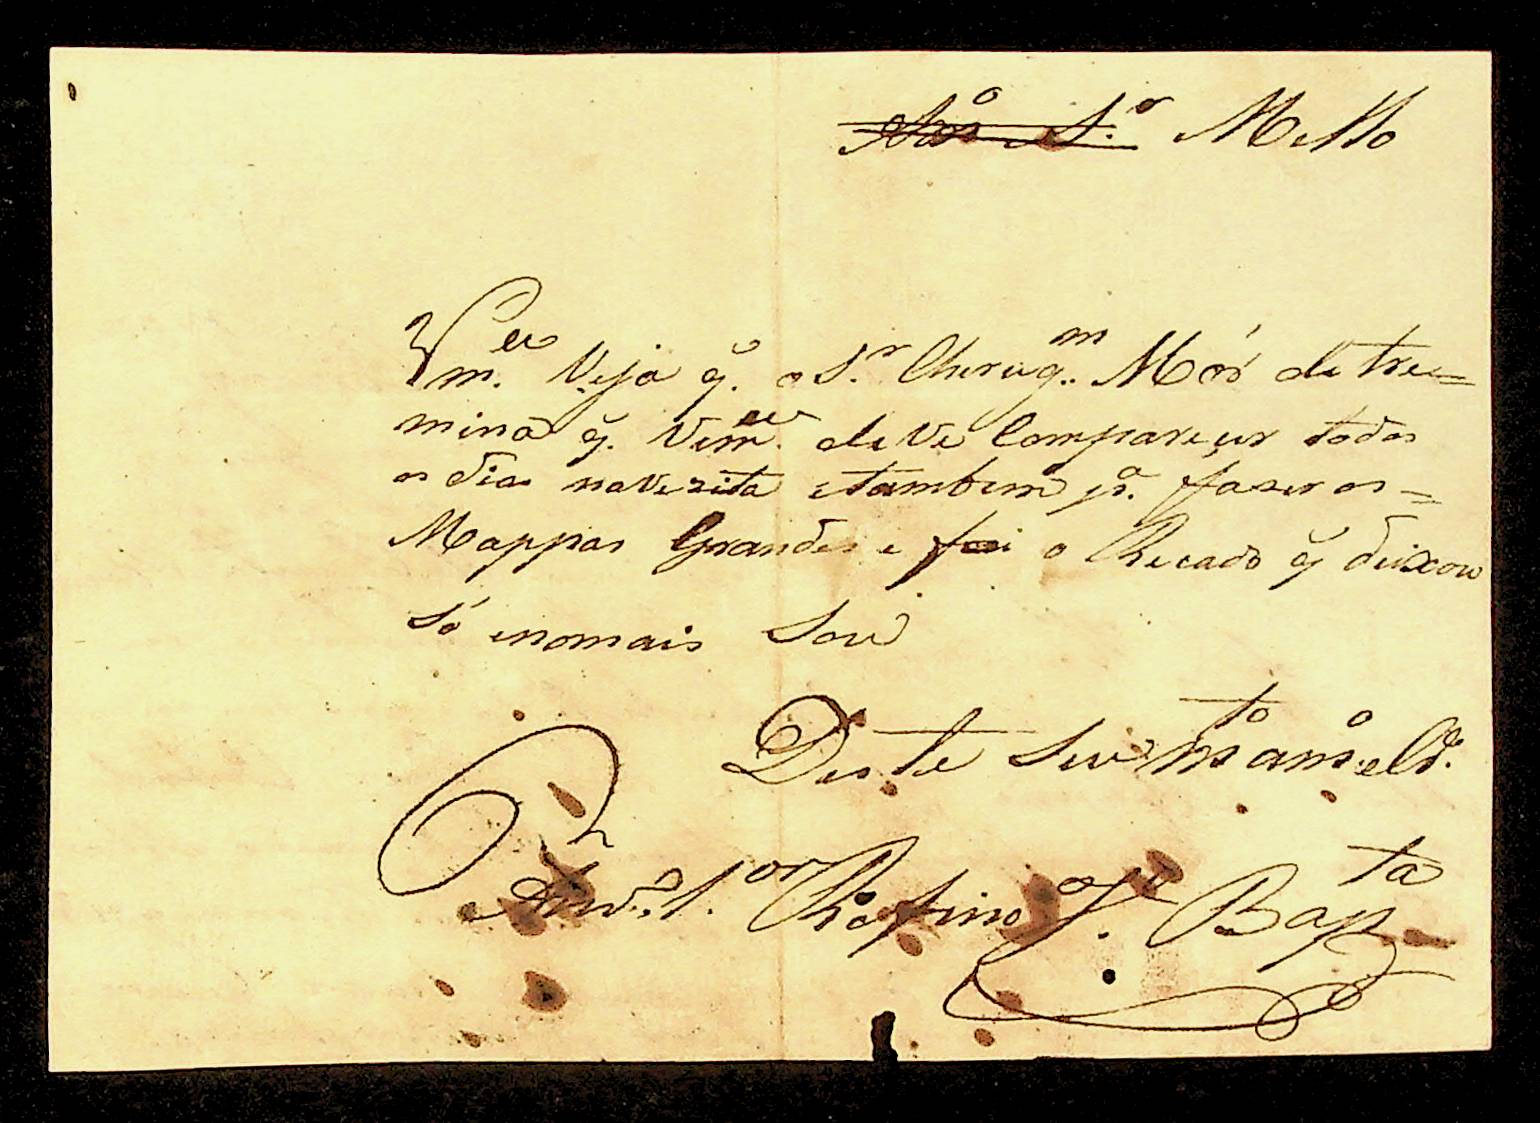 S.r Mello
Vm.ce Veja q. o S.r Cherugm. Mór detre=
mina q. Vm.ce deve Compareçer todos
os dias naVezita etambem p.a fazer os=
Mappas Grandes e foi o Recado q deixou
Só enomais Sou
Deste Seu m.to am.o e
Rofino J.e Bap.ta